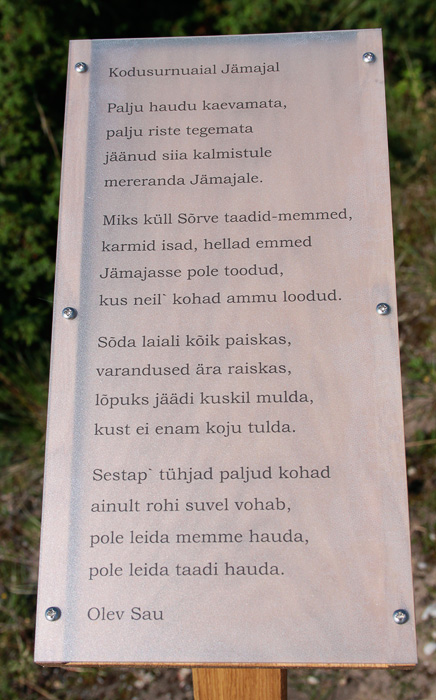 Kodusurnuaial Jämajal
Palju haudu kaevamata,
palju riste tegemata
jäänud siia kalmistule
mereranda Jämajale.
Miks küll Sõrve taadid-memmed,
karmid isad, hellad emmed
Jämajasse pole toodud,
kus neil` kohad ammu loodud.
Sõda laiali kõik paiskas,
varandused ära raiskas,
lõpuks jäädi kuskil mulda,
kust ei enam koju tulda.
Sestap` tühjad paljud kohad
ainult rohi suvel vohab,
pole leida memme hauda,
pole leida taadi hauda.
Olev Sau